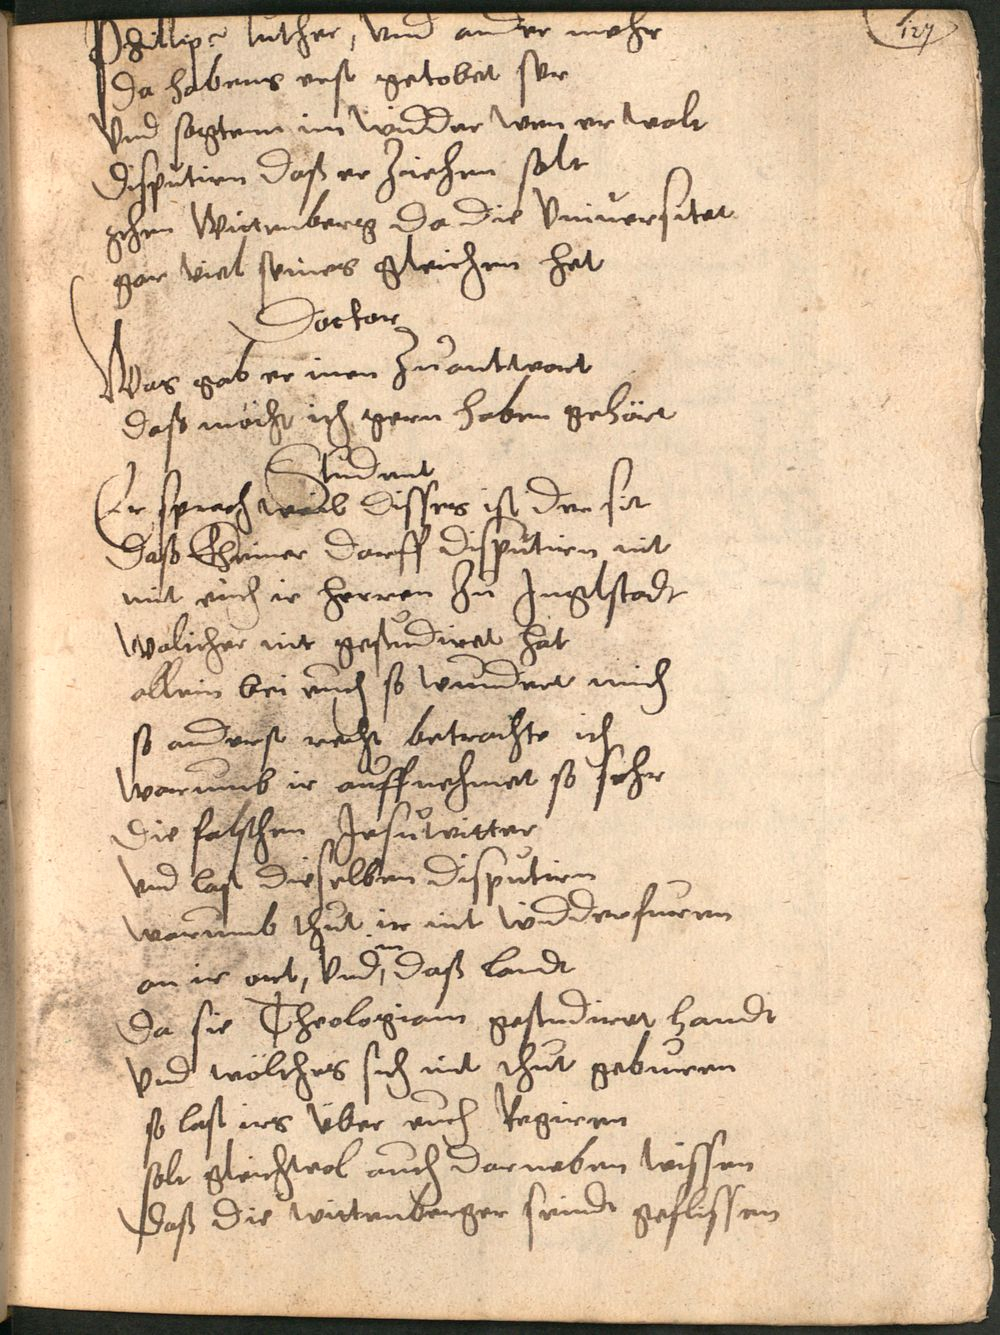 127
Phillips luther, vnd ander mehr
Da habens erst getobet ser
Vnd sagtenn im widder wen er wolt
Disputirn daß er Ziehen solt
gehen Wittenberg da die Vniuersitet
gar viel seines gleichen het
Doctor
Was gab er inen Zuantwort
daß möcht ich gern haben gehört
Student
Er sprach weib disses ist der sit
daß Kheiner darff disputirn nit
mit euch ir herren Zu Inglstadt
wölicher nit gestudiret hat
allein bei euch so wundert mich
so anderst recht betrachte ich
warumb ir auffnehmet so sehr
die falschen Jesuwitter
vnd last dieselben disputirn
warumb thut ir nit widderfuren
an ir ort, vnd in daß landt
da sie Theologiam gestudiret handt
Vnd wölches sich nit thut geburen
so last irs vber euch Regiren
solt gleichwol auch darneben wissen
daß die wittenberger seindt geflissen